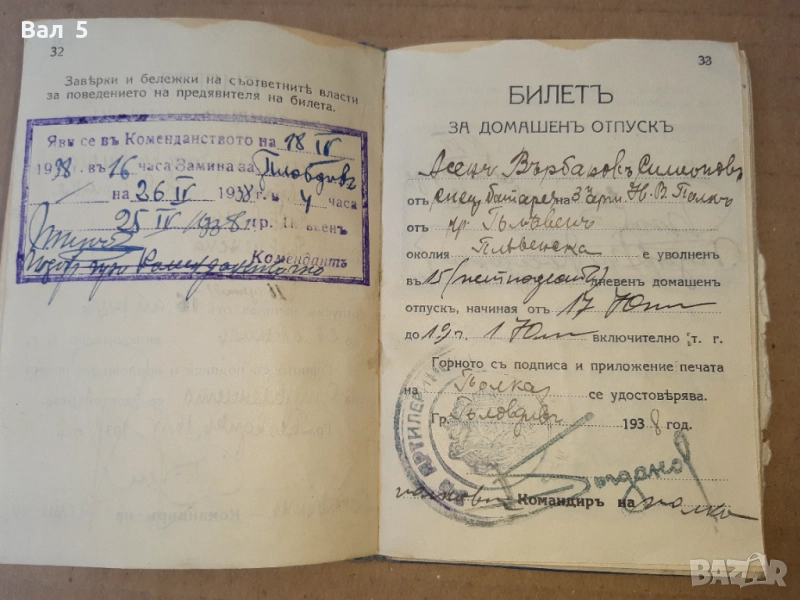 Вал 5
32
Завѣрки и бележки на съответнитѣ власти
за поведението на предявителя на билета.
Яви се въ Комендантството на 18 IV
1938 въ 16 часа Замина за Пловдивъ
на 26 IV 1938 г. и 4 часа
25 IV 1938 гр. Плѣвенъ
Комендантъ
33
БИЛЕТЪ
ЗА ДОМАШЕНЪ ОТПУСКЪ
Асенъ Върбановъ Симеоновъ
отъ батарея на 3 арт. Н. В. Полкъ
отъ гр. Плѣвенъ
околия Плѣвенска е уволненъ
въ 15 (петнадесет) дневенъ домашенъ
отпускъ, начиная отъ 17 Юни
до 1 Юли включително т. г.
Горното съ подписа и приложение печата
на Полка се удостовѣрява.
Гр. Пловдивъ 1938 год.
АРТИЛЕРИ
Командиръ на полка
BAZAR.bg